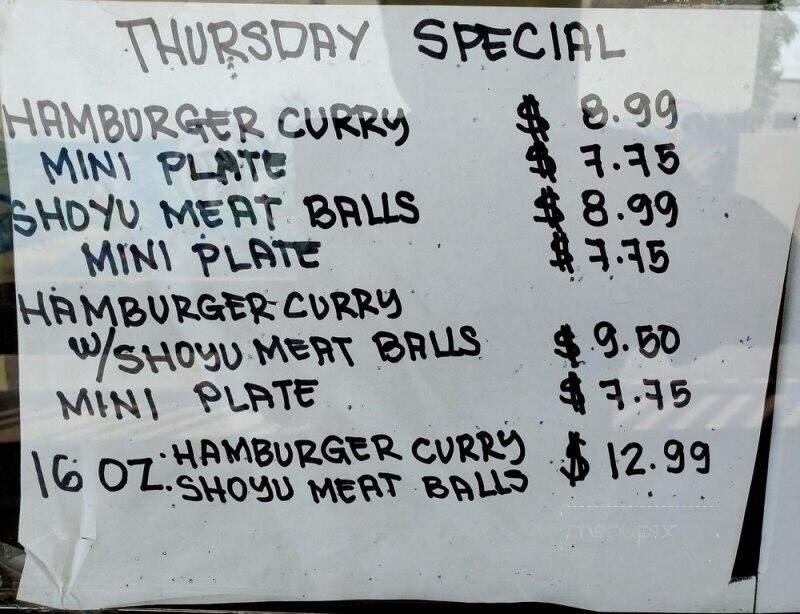 THURSDAY SPECIAL
HAMBURGER CURRY $ 8.99
MINI PLATE $ 7.75
SHOYU MEAT BALLS $ 8.99
MINI PLATE $ 7.75
HAMBURGER CURRY
W/SHOYU MEAT BALLS $ 9.50
MINI PLATE $ 7.75
16 OZ. HAMBURGER CURRY $ 12.99
SHOYU MEAT BALLS
menupix